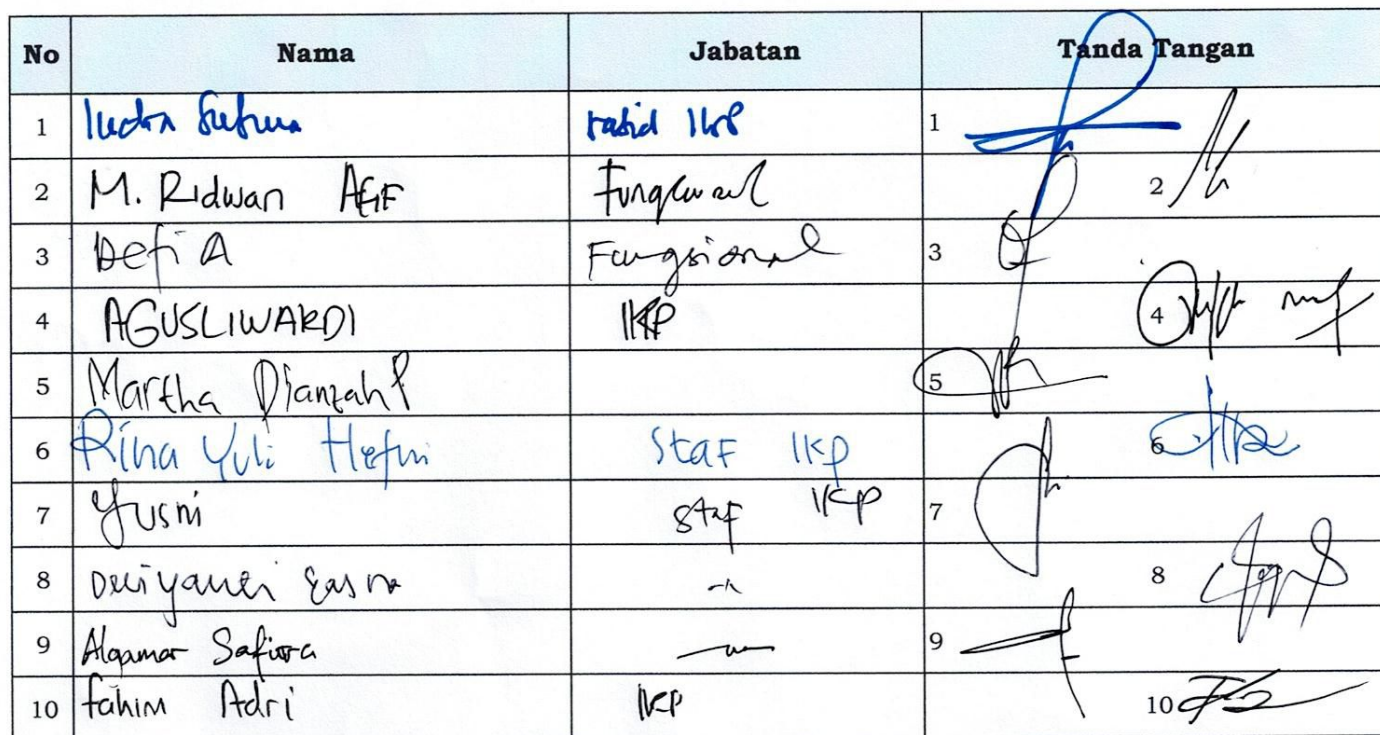 No Nama Jabatan Tanda Tangan
1 Indra IKP 1
2 M. Ridwan Fungsional 2
3 Defi A Fungsional 3
4 AGUSLIWARDI IKP 4
5 Martha 5
6 Rina Yuli Hefni Staf IKP 6
7 Yusni Staf IKP 7
8 8
9 Alqamar Safira 9
10 Fahim Adri IKP 10